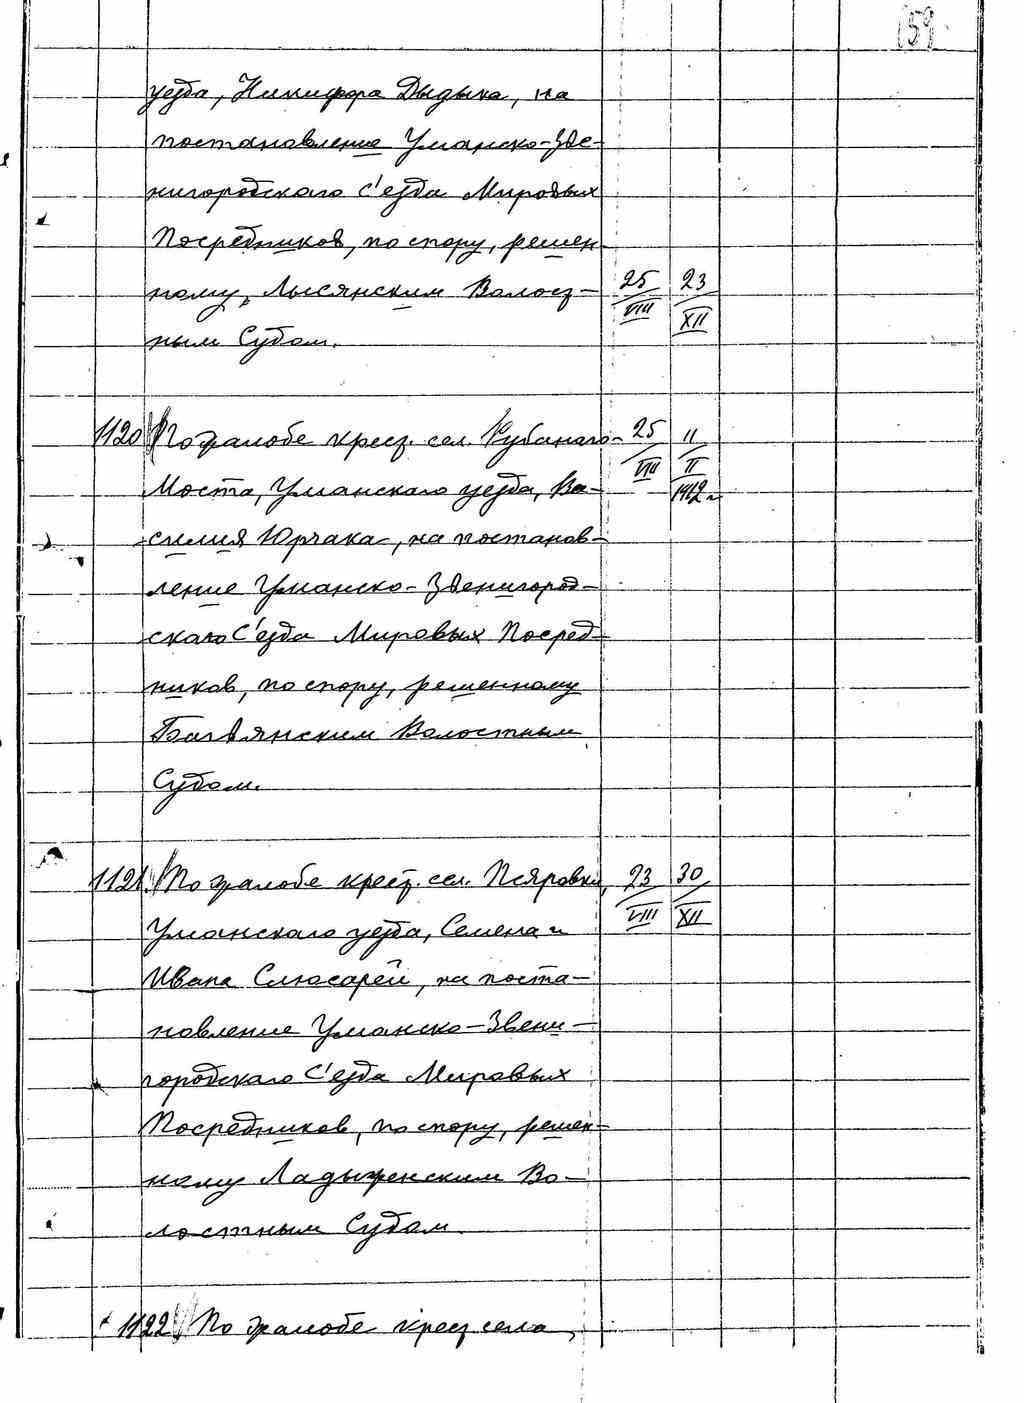 159
уезда, Никифора Дыдыка, на
постановление Уманско-Зве-
нигородскаго С'езда Мировых
Посредников, по спору, решен-
ному, Лысянским Волост- 25/VIII 23/XII
ным Судом.
1120 По жалобе крест. сел. Рубанаго- 25/VIII 11/II 1912 г.
Моста, Уманскаго уезда, Ва-
силия Юрчака, на постанов-
ление Уманско-Звенигород-
скаго С'езда Мировых Посред-
ников, по спору, решенному
Багвянским Волостным
Судом.
1121. По жалобе крест. сел. Псяровки, 23/VIII 30/XII
Уманскаго уезда, Семена и
Ивана Слюсарей, на поста-
новление Уманско-Звени-
городскаго С'езда Мировых
Посредников, по спору, решен-
ному Ладыженским Во-
лостным Судом.
1122 По жалобе крест. села,